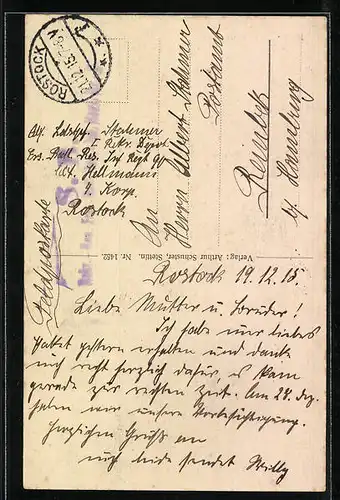 ROSTOCK
21.12.15
Feldpostkarte
Abs. Ldstpfl. Stademer
I. Rekr. Depot
Ers. Batl. Res. Inf. Regt. 90
Hellmann
4. Korp.
Rostock
An
Herrn Albert Stademer
Postamt
Reinbek
b/ Hamburg
Verlag: Arthur Schuster, Stettin. Nr. 1422.
Rostock 19.12.15.
Liebe Mutter u. Bruder!
Ich habe euer liebes
Paket gestern erhalten und danke
euch recht herzlich dafür, es kam
gerade zur rechten Zeit. Am 28. Dez.
haben wir unsere Vorbesichtigung.
Herzlichen Gruß an
euch beide sendet Willy